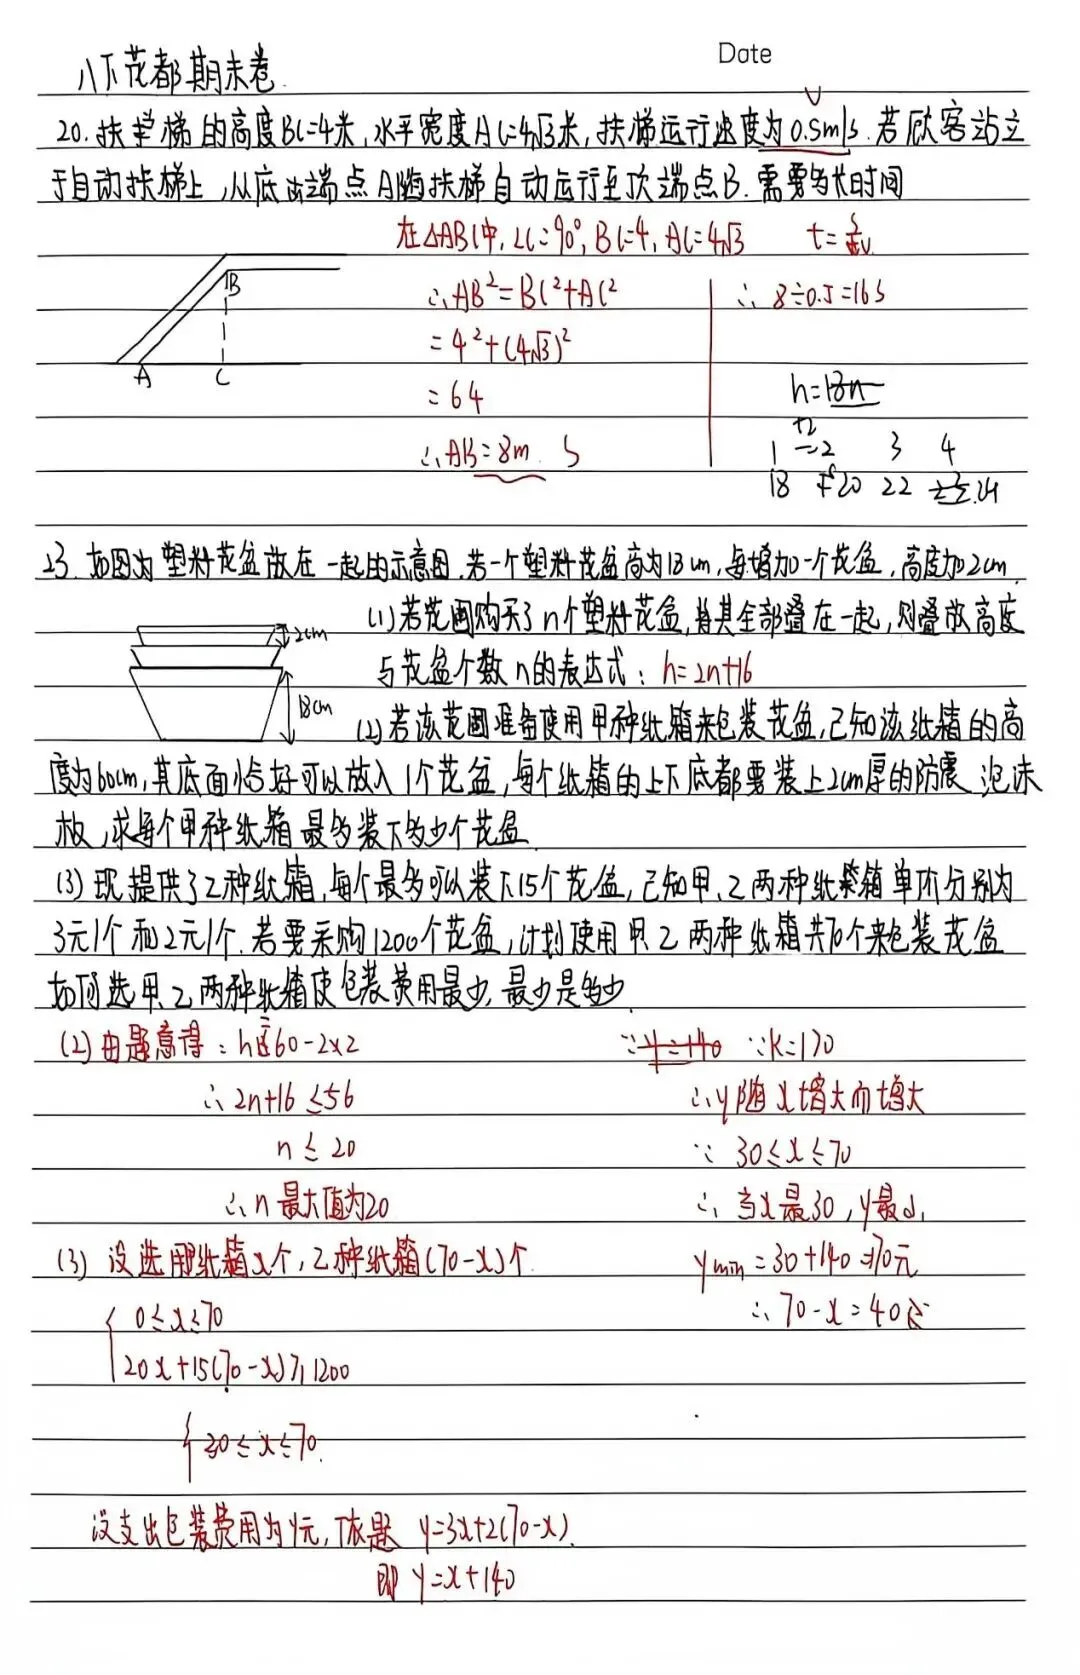 Date
八下花都期末卷.
20. 扶手梯的高度BC=4米,水平宽度AC=4√3米,扶梯运行速度为0.5m/s.若顾客站立
于自动扶梯上,从底端点A随扶梯自动运行至顶端点B.需要多长时间
在△ABC中,∠C=90°,BC=4,AC=4√3
∴AB²=BC²+AC²
=4²+(4√3)²
=64
∴AB=8m S
∴8÷0.5=16s
B
A C
h=18n
+2
1 2 3 4
18 +20 22 24
23. 如图为塑料花盆放在一起的示意图.若一个塑料花盆高为18cm,每增加一个花盆,高度加2cm.
2cm
18cm
(1)若花圃购买了n个塑料花盆,将其全部叠在一起,则叠放高度
与花盆个数n的表达式:h=2n+16
(2)若该花圃准备使用甲种纸箱来包装花盆,已知该纸箱的高
度为60cm,其底面恰好可以放入1个花盆,每个纸箱的上下底都要装上2cm厚的防震泡沫
板,求每个甲种纸箱最多装下多少个花盆
(3)现提供了乙种纸箱,每个最多可以装下15个花盆,已知甲、乙两种纸箱单价分别为
3元/个和2元/个.若要采购1200个花盆,计划使用甲乙两种纸箱共70个来包装花盆
如何选甲、乙两种纸箱使包装费用最少,最少是多少.
(2)由题意得:h≤60-2×2
∴2n+16≤56
n≤20
∴n最大值为20
(3) 设选用纸箱x个,乙种纸箱(70-x)个.
0≤x≤70
20x+15(70-x)≥1200
30≤x≤70.
设支出包装费用为y元,依题 y=3x+2(70-x).
即 y=x+140
∵y=140 ∵k=170
∴y随x增大而增大
∵ 30≤x≤70
∴ 当x最30,y最小
ymin=30+140=170元
∴70-x=40个